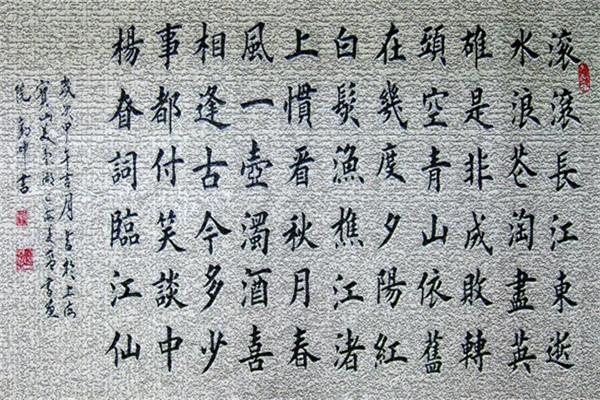 滚滚長江東逝
水浪花淘盡英
雄是非成敗轉
頭空青山依舊
在幾度夕陽紅
白髮漁樵江渚
上慣看秋月春
風一壺濁酒喜
相逢古今多少
事都付笑談中
楊眘詞臨江仙
歲次甲午吉月書於上海
寶山美蘭湖書畫
院書